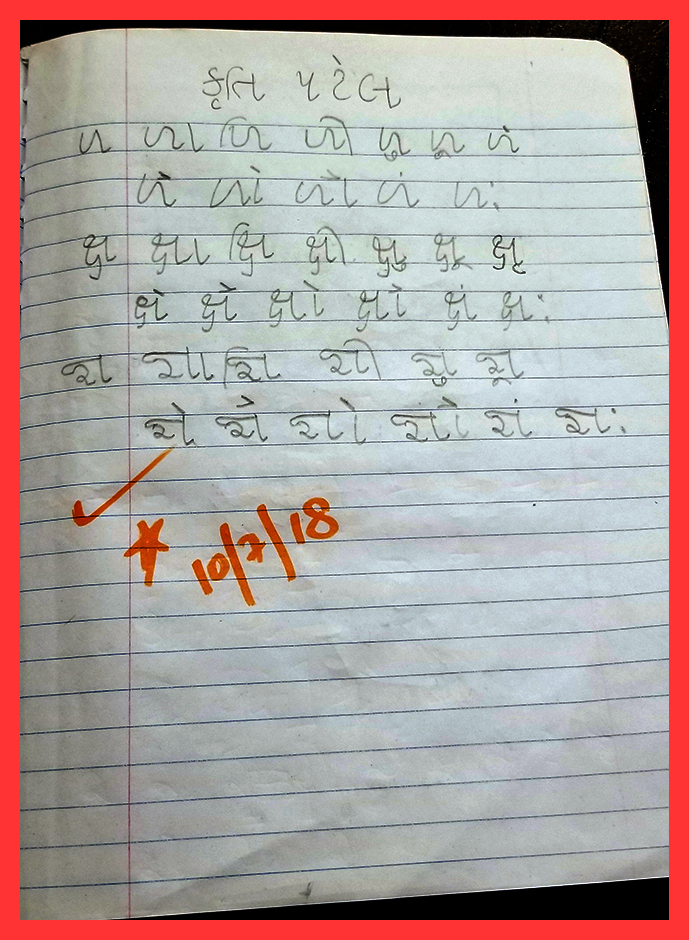 કૃતિ પટેલ
ળ ળા ળિ ળી ળુ ળૂ ળે
ળૈ ળો ળૌ ળં ળઃ
ક્ષ ક્ષા ક્ષિ ક્ષી ક્ષુ ક્ષૂ ક્ષૃ
ક્ષે ક્ષૈ ક્ષો ક્ષૌ ક્ષં ક્ષઃ
જ્ઞ જ્ઞા જ્ઞિ જ્ઞી જ્ઞુ જ્ઞૂ
જ્ઞે જ્ઞૈ જ્ઞો જ્ઞૌ જ્ઞં જ્ઞઃ
10/7/18